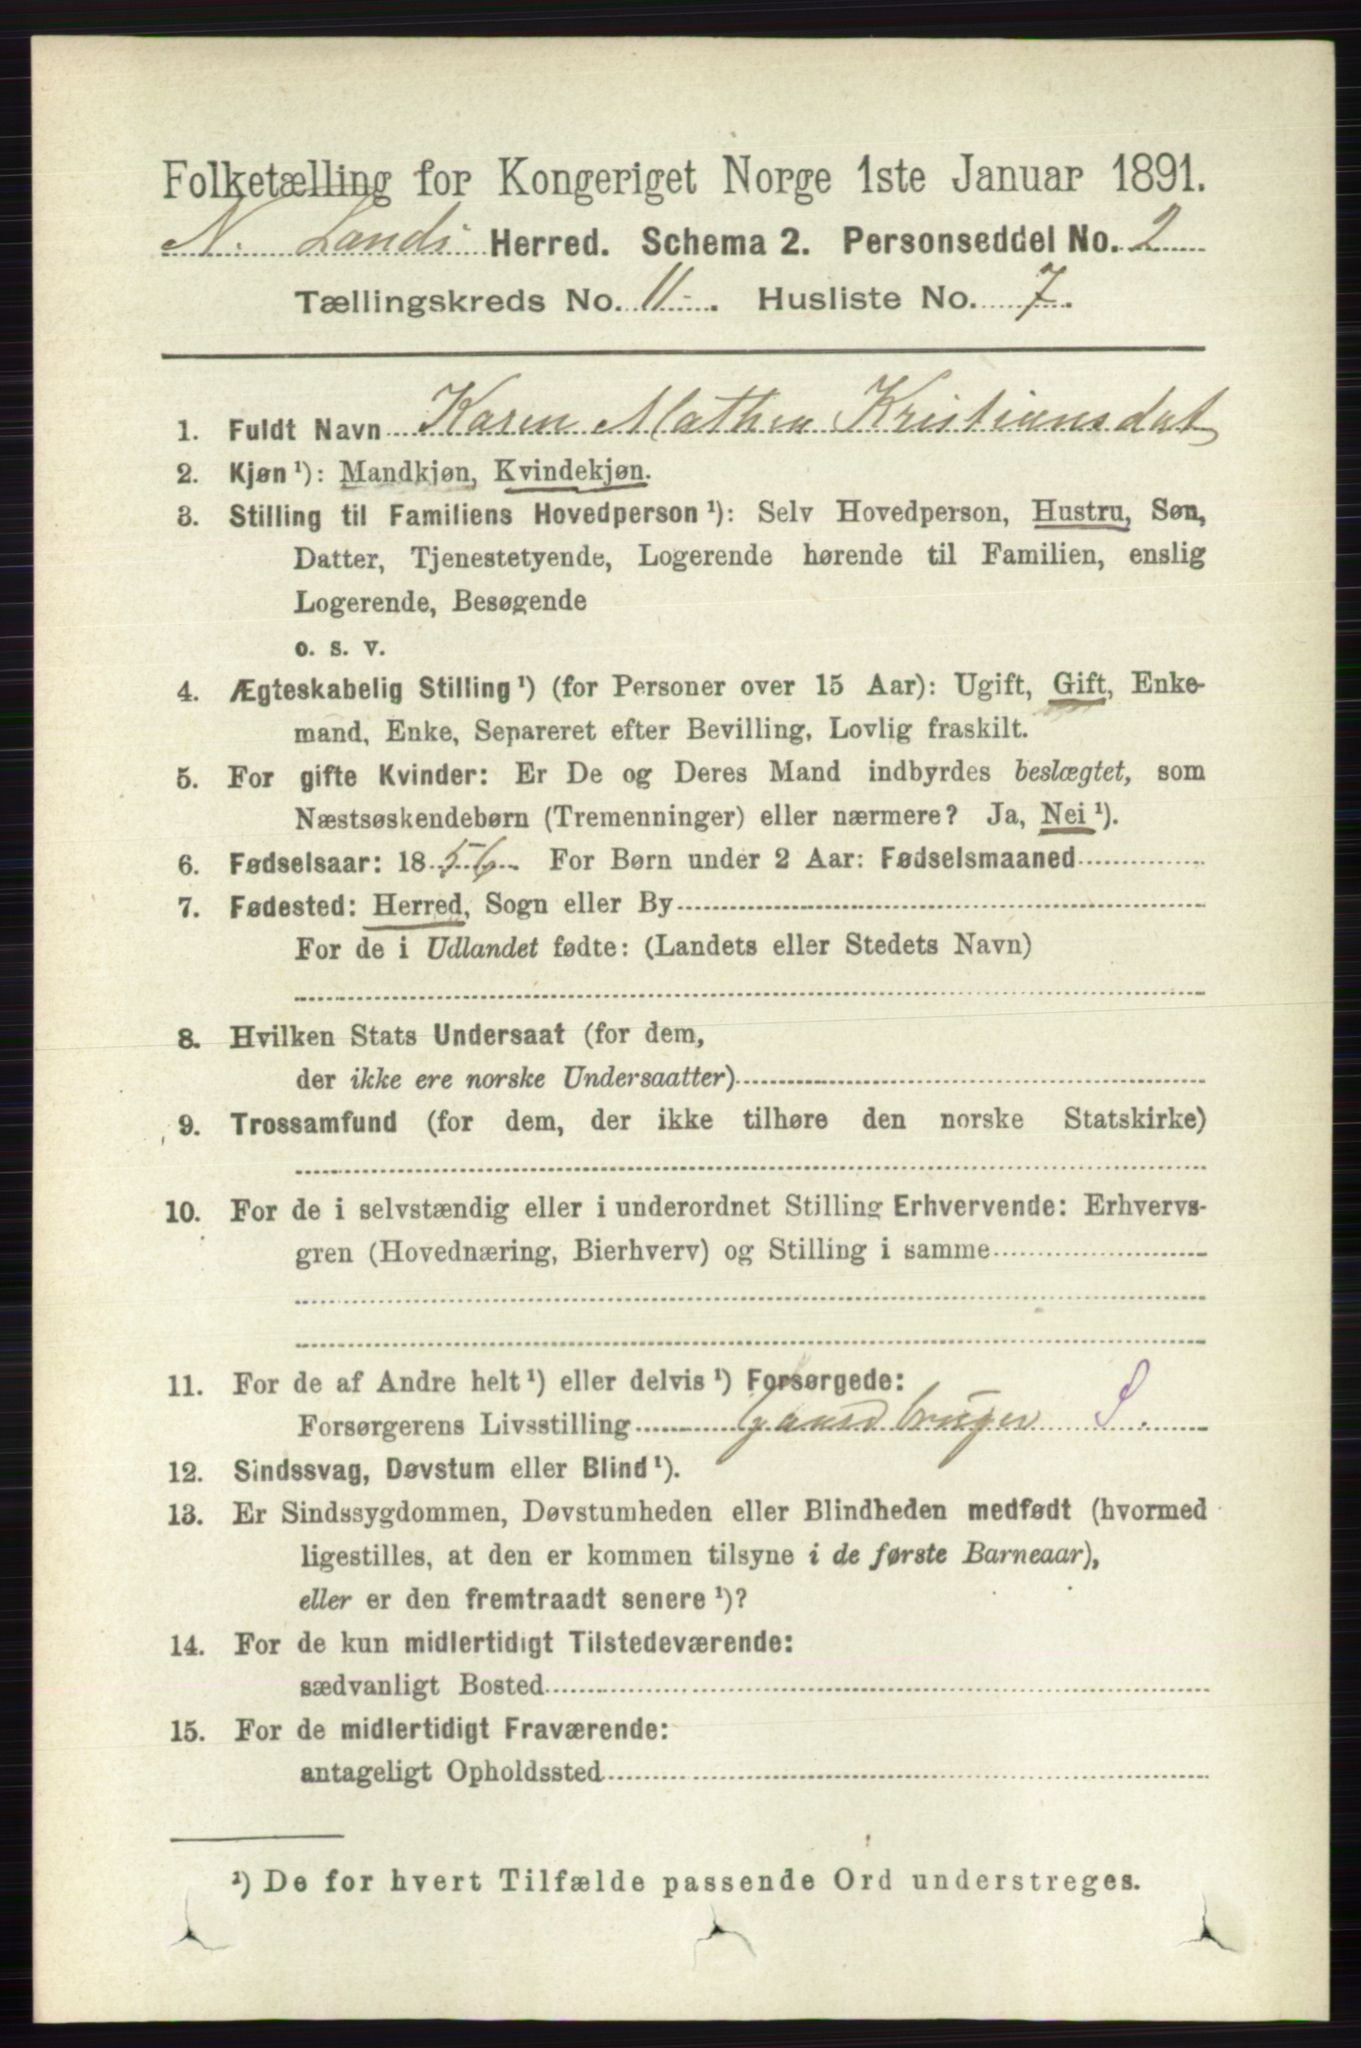 Folketælling for Kongeriget Norge 1ste Januar 1891.
N. Lands Herred. Schema 2. Personseddel No. 2
Tællingskreds No. 11. Husliste No. 7.
1. Fuldt Navn Karen Mathea Kristiansdat
2. Kjøn ¹): Mandkjøn, Kvindekjøn.
3. Stilling til Familiens Hovedperson ¹): Selv Hovedperson, Hustru, Søn,
Datter, Tjenestetyende, Logerende hørende til Familien, enslig
Logerende, Besøgende
o. s. v.
4. Ægteskabelig Stilling ¹) (for Personer over 15 Aar): Ugift, Gift, Enke-
mand, Enke, Separeret efter Bevilling, Lovlig fraskilt.
5. For gifte Kvinder: Er De og Deres Mand indbyrdes beslægtet, som
Næstsøskendebørn (Tremenninger) eller nærmere? Ja, Nei ¹).
6. Fødselsaar: 1856. For Børn under 2 Aar: Fødselsmaaned
7. Fødested: Herred, Sogn eller By
For de i Udlandet fødte: (Landets eller Stedets Navn)
8. Hvilken Stats Undersaat (for dem,
der ikke ere norske Undersaatter)
9. Trossamfund (for dem, der ikke tilhøre den norske Statskirke)
10. For de i selvstændig eller i underordnet Stilling Erhvervende: Erhvervs-
gren (Hovednæring, Bierhverv) og Stilling i samme
11. For de af Andre helt ¹) eller delvis ¹) Forsørgede:
Forsørgerens Livsstilling Gaardbruger S.
12. Sindssvag, Døvstum eller Blind ¹).
13. Er Sindssygdommen, Døvstumheden eller Blindheden medfødt (hvormed
ligestilles, at den er kommen tilsyne i de første Barneaar),
eller er den fremtraadt senere ¹)?
14. For de kun midlertidigt Tilstedeværende:
sædvanligt Bosted
15. For de midlertidigt Fraværende:
antageligt Opholdssted
¹) De for hvert Tilfælde passende Ord understreges.